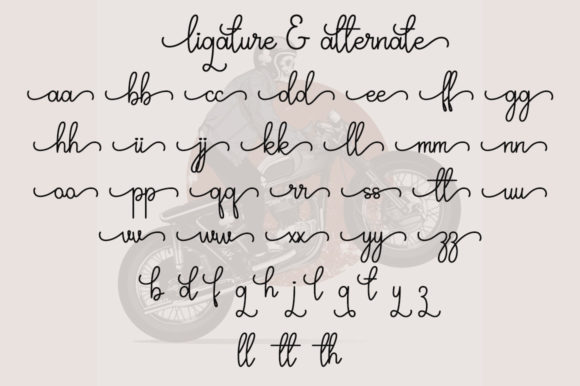 ligature & alternate
aa bb cc dd ee ff gg
hh ii jj kk ll mm nn
oo pp qq rr ss tt uu
vv ww xx yy zz
b d f g h j l q t y z
ll tt th